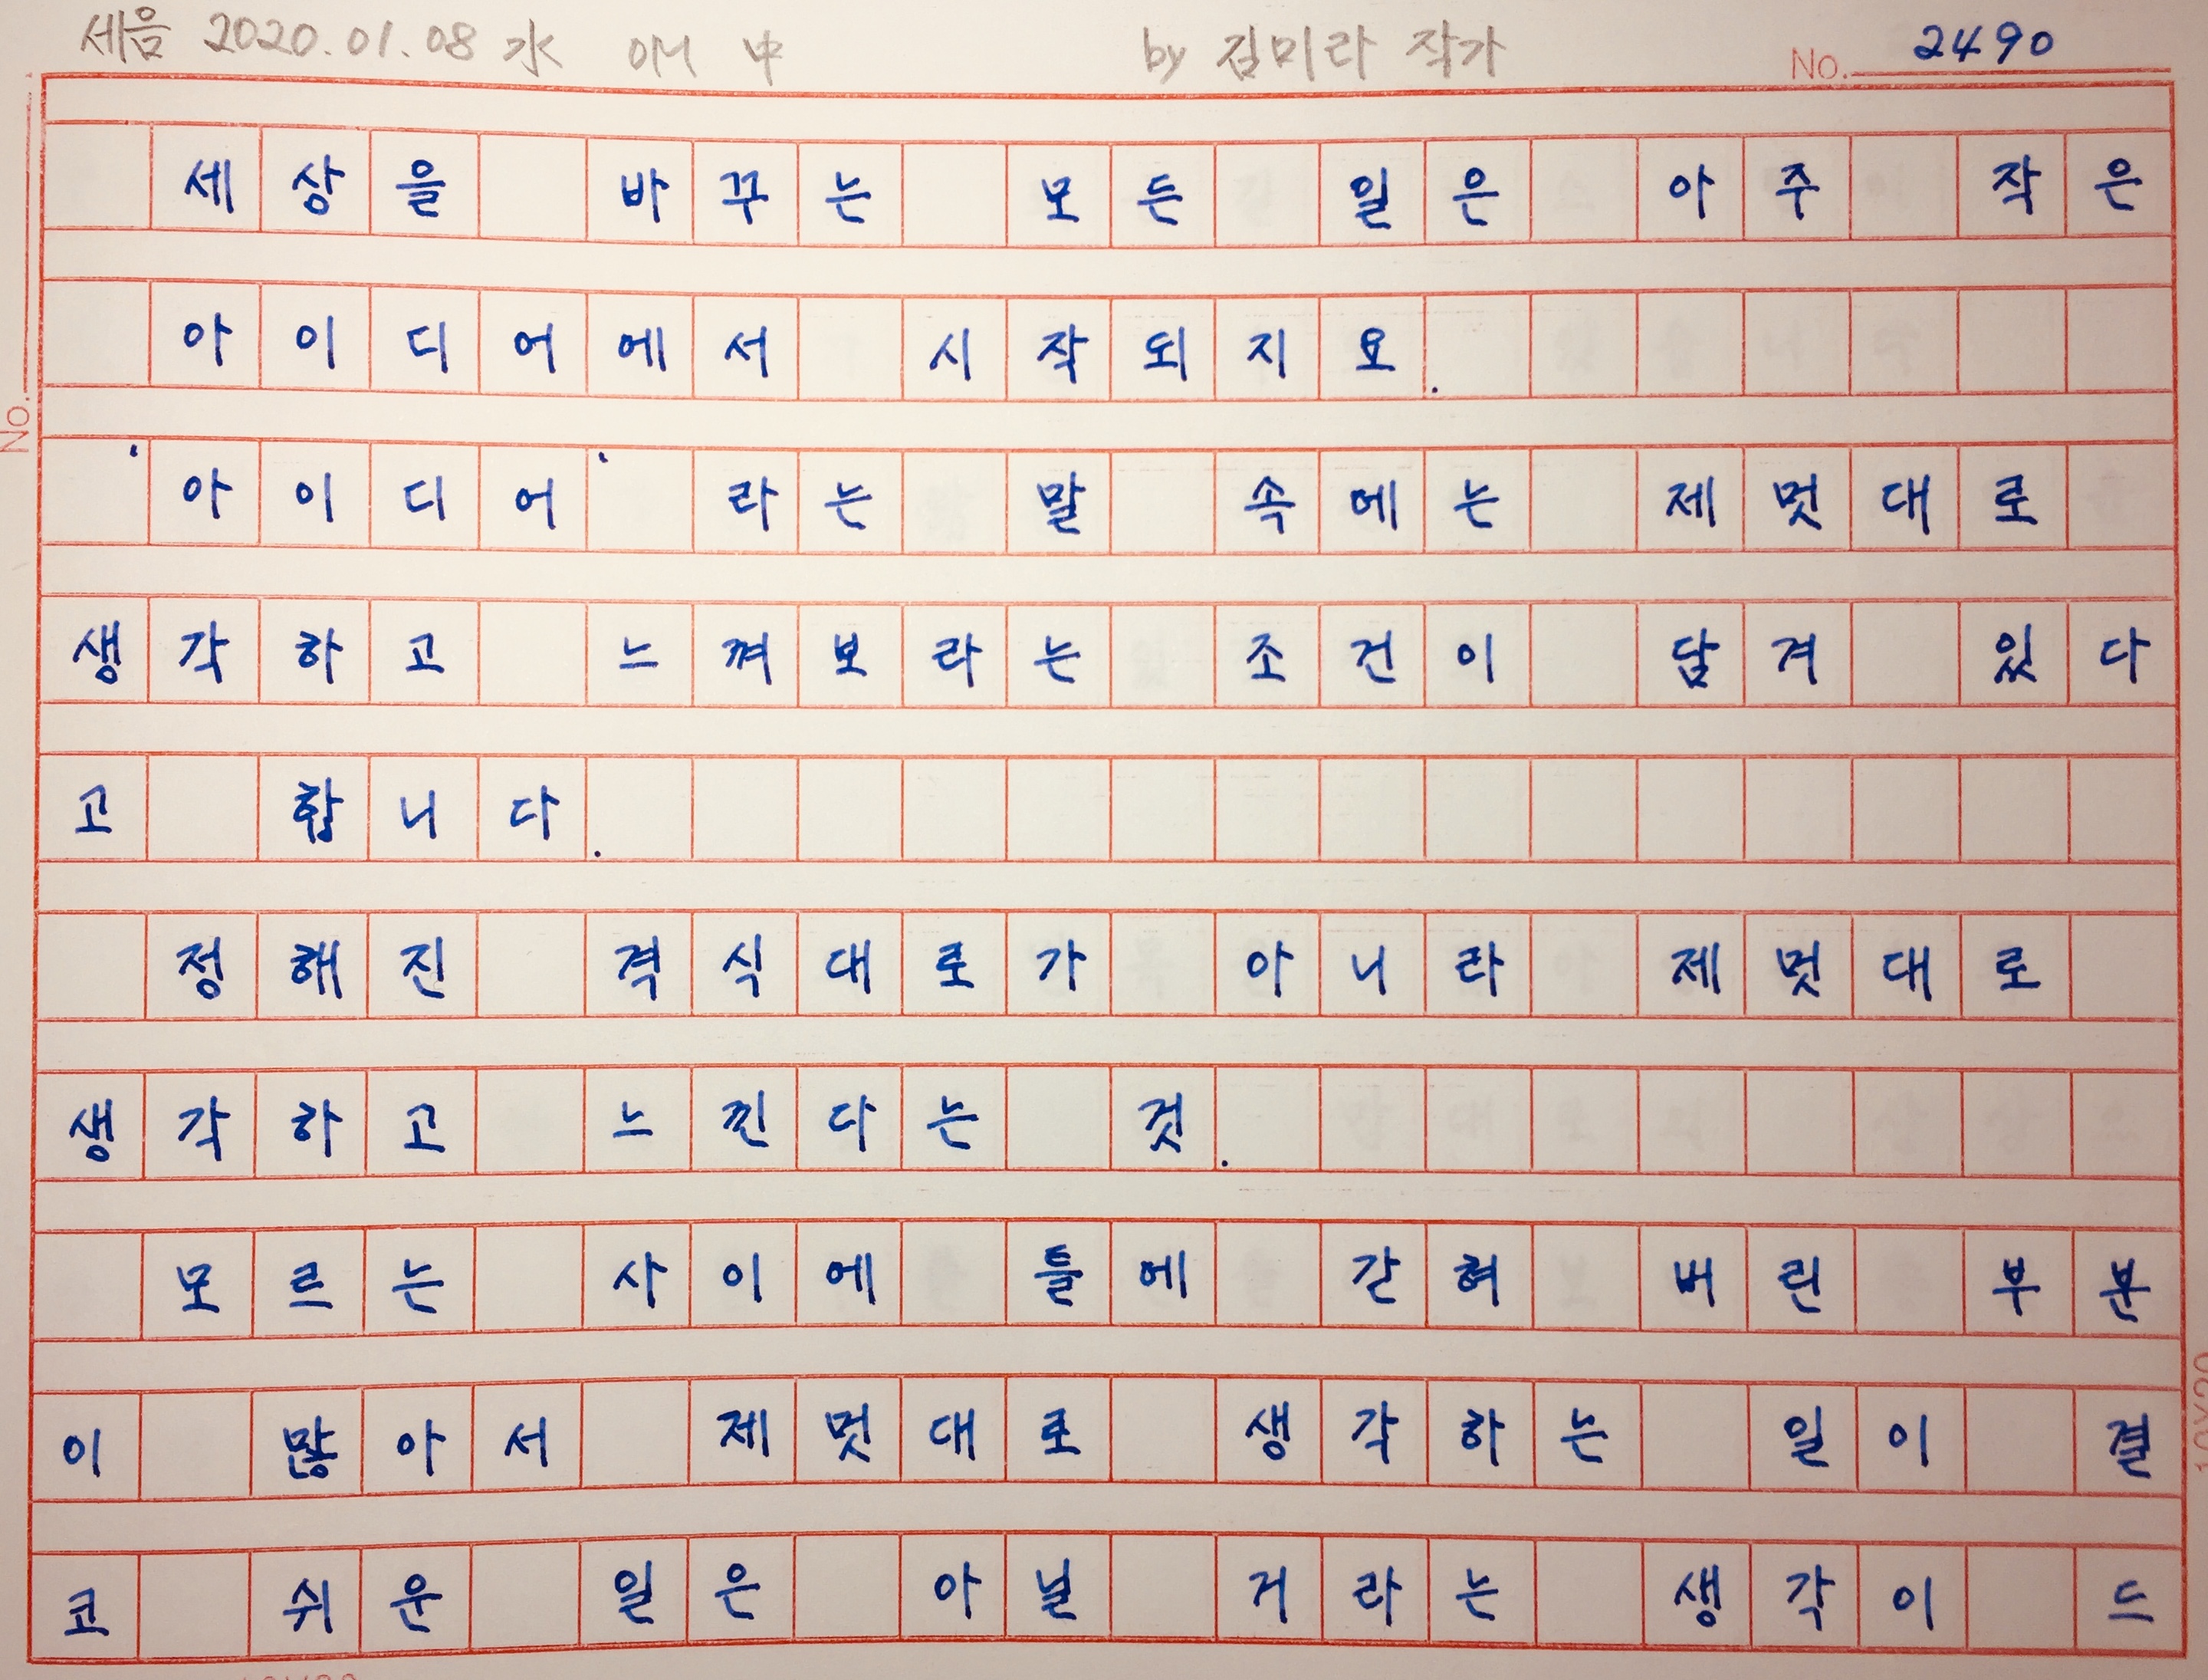 세음 2020.01.08 水 에 中 by 김미라 작가 No. 2490
세상을 바꾸는 모든 일은 아주 작은
아이디어에서 시작되지요.
'아이디어'라는 말 속에는 제멋대로
생각하고 느껴보라는 조건이 담겨 있다
고 합니다.
정해진 격식대로가 아니라 제멋대로
생각하고 느낀다는 것.
모르는 사이에 틀에 갇혀 버린 부분
이 많아서 제멋대로 생각하는 일이 결
코 쉬운 일은 아닐 거라는 생각이 드
No.
10X20